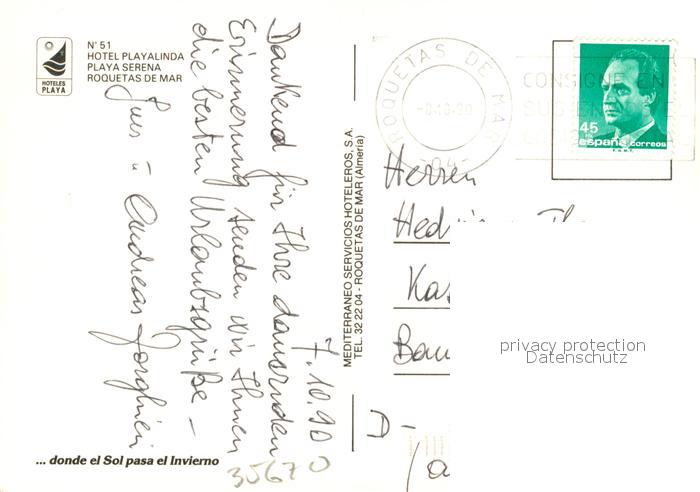 HOTELES
PLAYA
N° 51
HOTEL PLAYALINDA
PLAYA SERENA
ROQUETAS DE MAR
7.10.90
Dankend für Ihre dauernden
Erinnerung senden wir Ihnen
die besten Urlaubsgrüße –
Andreas
... donde el Sol pasa el Invierno
35670
MEDITERRANEO SERVICIOS HOTELEROS, S.A.
TEL. 32 22 04 - ROQUETAS DE MAR (Almería)
ROQUETAS DE MAR
CONSIGNE EN
SUS
45
españa correos
F.N.M.T.
Herren
D-
privacy protection
Datenschutz